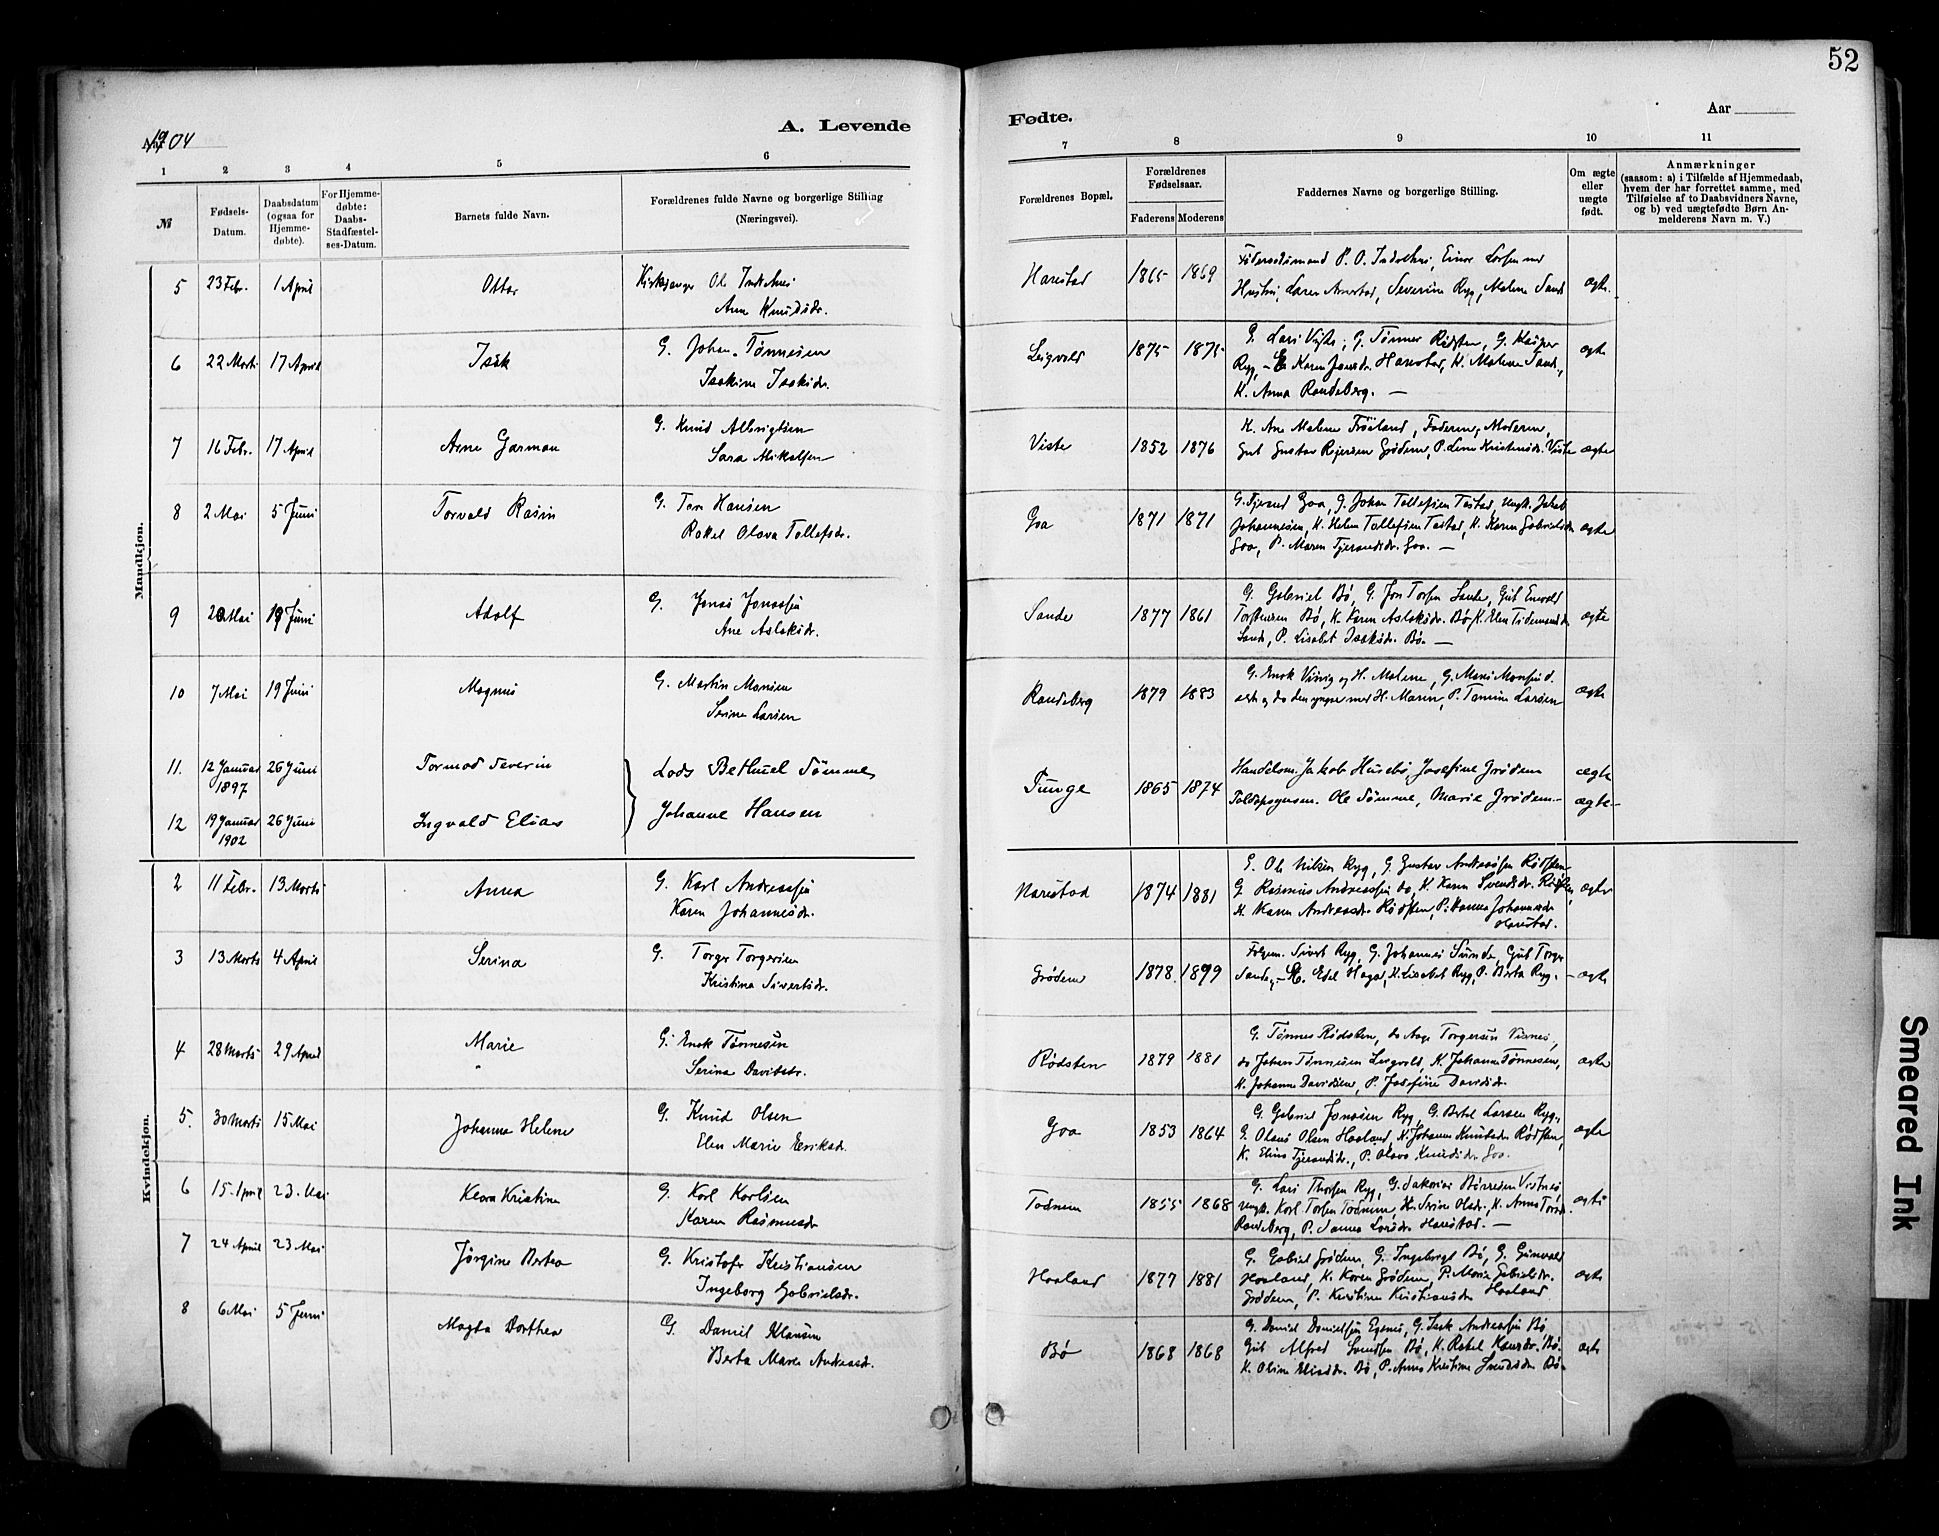 52
1904
A. Levende
Fødte.
Aar
1 2 3 4 5 6 7 8 9 10 11
№
Fødsels-
Datum.
Daabsdatum
(ogsaa for
Hjemme-
døbte).
For Hjemme-
døbte:
Daabs-
Stadfæstel-
ses-Datum.
Barnets fulde Navn.
Forældrenes fulde Navne og borgerlige Stilling
(Næringsvei).
Forældrenes Bopæl.
Forældrenes
Fødselsaar.
Faderens Moderens
Faddernes Navne og borgerlige Stilling.
Om ægte
eller
uægte
født.
Anmærkninger
(saasom: a) i Tilfælde af Hjemmedaab,
hvem der har forrettet samme, med
Tilføielse af to Daabsvidners Navne,
og b) ved uægtefødte Børn An-
melderens Navn m. V.)
Mandkjøn.
5 23 Febr. 1 April Ottar Ole
Ane Knudsdr.
Harestad 1865 1869
Severine Ryg, Malene Sande
ægte
6 22 Marts 17 April Isak G. Johan Tønnesen
Isakine Isaksdr.
Leigvold 1875 1875 G. Lars Viste, G. Tønnes Rødsten, G. Kasper
Ryg, Karen Jansdr. Harestad, K. Malene Sande,
K. Anna Randeberg. —
ægte
7 16 Febr. 17 April Arne Garman G. Knud Albrigtsen
Sara Mikalsen
Viste 1852 1876 K. Ane Malene Frøiland, Faderen, Moderen,
Gut Gustav Grødem, P. Lene Kristensdr. Viste
ægte
8 2 Mai 5 Juni Torvald Rasin G. Tore Hansen
Rakel Olava Tollefsdr.
Goa 1871 1871 G. Tjerand Goa, G. Johan Tollefsen Tastad, Ungk. Jakob
Johannesen, K. Helene Tollefsen Tastad, K. Karen Gabrielsdr.
Goa, P. Maren Tjerandsdr. Goa. —
ægte
9 20 Mai 19 Juni Adolf G. Jonas Jonassen
Ane Aslaksdr.
Sande 1877 1861 G. Gabriel Bø, G. Jon Torsen Sande, Gut Enevald
Torstensen Bø, K. Karen Aslaksdr. Bø, K. Elen Tidemandsdr.
Sande, P. Lisabet Isaksdr. Bø —
ægte
10 7 Mai 19 Juni Magnus G. Martin Monsen
Serine Larsen
Randeberg 1879 1883 G. Enok Visvig og H. Malene, G. Mons Monsen d.
ældre og do den yngre med H. Maren, P. Tomine Larsen
ægte
11. 12 Januar 1897 26 Juni Tormod Severin
Lods Bethuel Tømme
Tunge 1865 1874 Handelsm. Jakob Husebø, Josefine Grødem
ægte
12 19 Januar 1902 26 Juni Ingvald Elias
Johanne Hansen
Toldopsynsm. Ole Tømme, Marie Grødem.—
ægte
Kvindekjøn.
2 11 Febr. 13 Marts Anna G. Karl Andreassen
Karen Johannesdr.
Harestad 1874 1881 G. Ole Nilsen Ryg, G. Gustav Andreassen Rødsten
G. Rasmus Andreassen do, K. Karen Svendsdr. Rødsten,
K. Maren Andreasdr. Rødsten, P. Hanna Johannesdr.
Harestad.
ægte
3 13 Marts 4 April Serina G. Torger Torgersen
Kristina Sivertsdr.
Grødem 1878 1879 Sivert Ryg, G. Johannes Sunde, Gut Torger
Sande, Edel Haga, K. Lisabet Ryg, P. Berta Ryg. —
ægte
4 28 Marts 29 April Marie G. Enok Tønnesen
Serina Davidsdr.
Rødsten 1879 1881 G. Tønnes Rødsten, do Aage Torgersen Vistnes,
do Johan Tønnesen Leigvold, K. Johanne Tønnesen,
K. Johanne Davidsen, P. Josefine Davidsdr.
ægte
5. 30 Marts 15 Mai Johanna Helene G. Knud Olsen
Elen Marie Eriksdr.
Goa 1853 1864 G. Gabriel Jonassen Ryg, G. Bertel Larsen Ryg,
G. Olaus Olsen Haaland, K. Johanne Knutsdr. Rødsten,
K. Elene Tjerandsdr., P. Olava Knudsdr. Goa.
ægte
6 15 April 23 Mai Klara Kristine G. Karl Karlsen
Karen Rasmusdr
Todnem 1855 1868 G. Lars Thorsen Ryg, G. Sakarias Børresen Vistnes,
Ungk. Karl Torsen Todnem, K. Serine Olsdr., K. Anna
Randeberg, P. Sanna Larsdr. Harestad. —
ægte
7 24 April 23 Mai Jørgine Bertea G. Kristofer Kristiansen
Ingeborg Gabrielsdr.
Haaland 1877 1881 G. Gabriel Grødem, G. Ingebrigt Bø, G. Gunvald
Haaland, K. Karen Grødem, P. Marie Gabrielsdr.
Grødem, P. Kristine Kristiansdr Haaland
ægte
8 6 Mai 5 Juni Magda Dorthea G. Daniel Klausen
Berta Marie Andreasdr.
Bø 1868 1868 G. Daniel Danielsen Egenes, G. Isak Andreassen Bø
Gut Alfred Svendsen Bø, K. Rakel Hansdr. Bø.
K. Oline Eliasdr. Bø, P. Anne Kristine Svendsdr. Bø
ægte
Smeared Ink